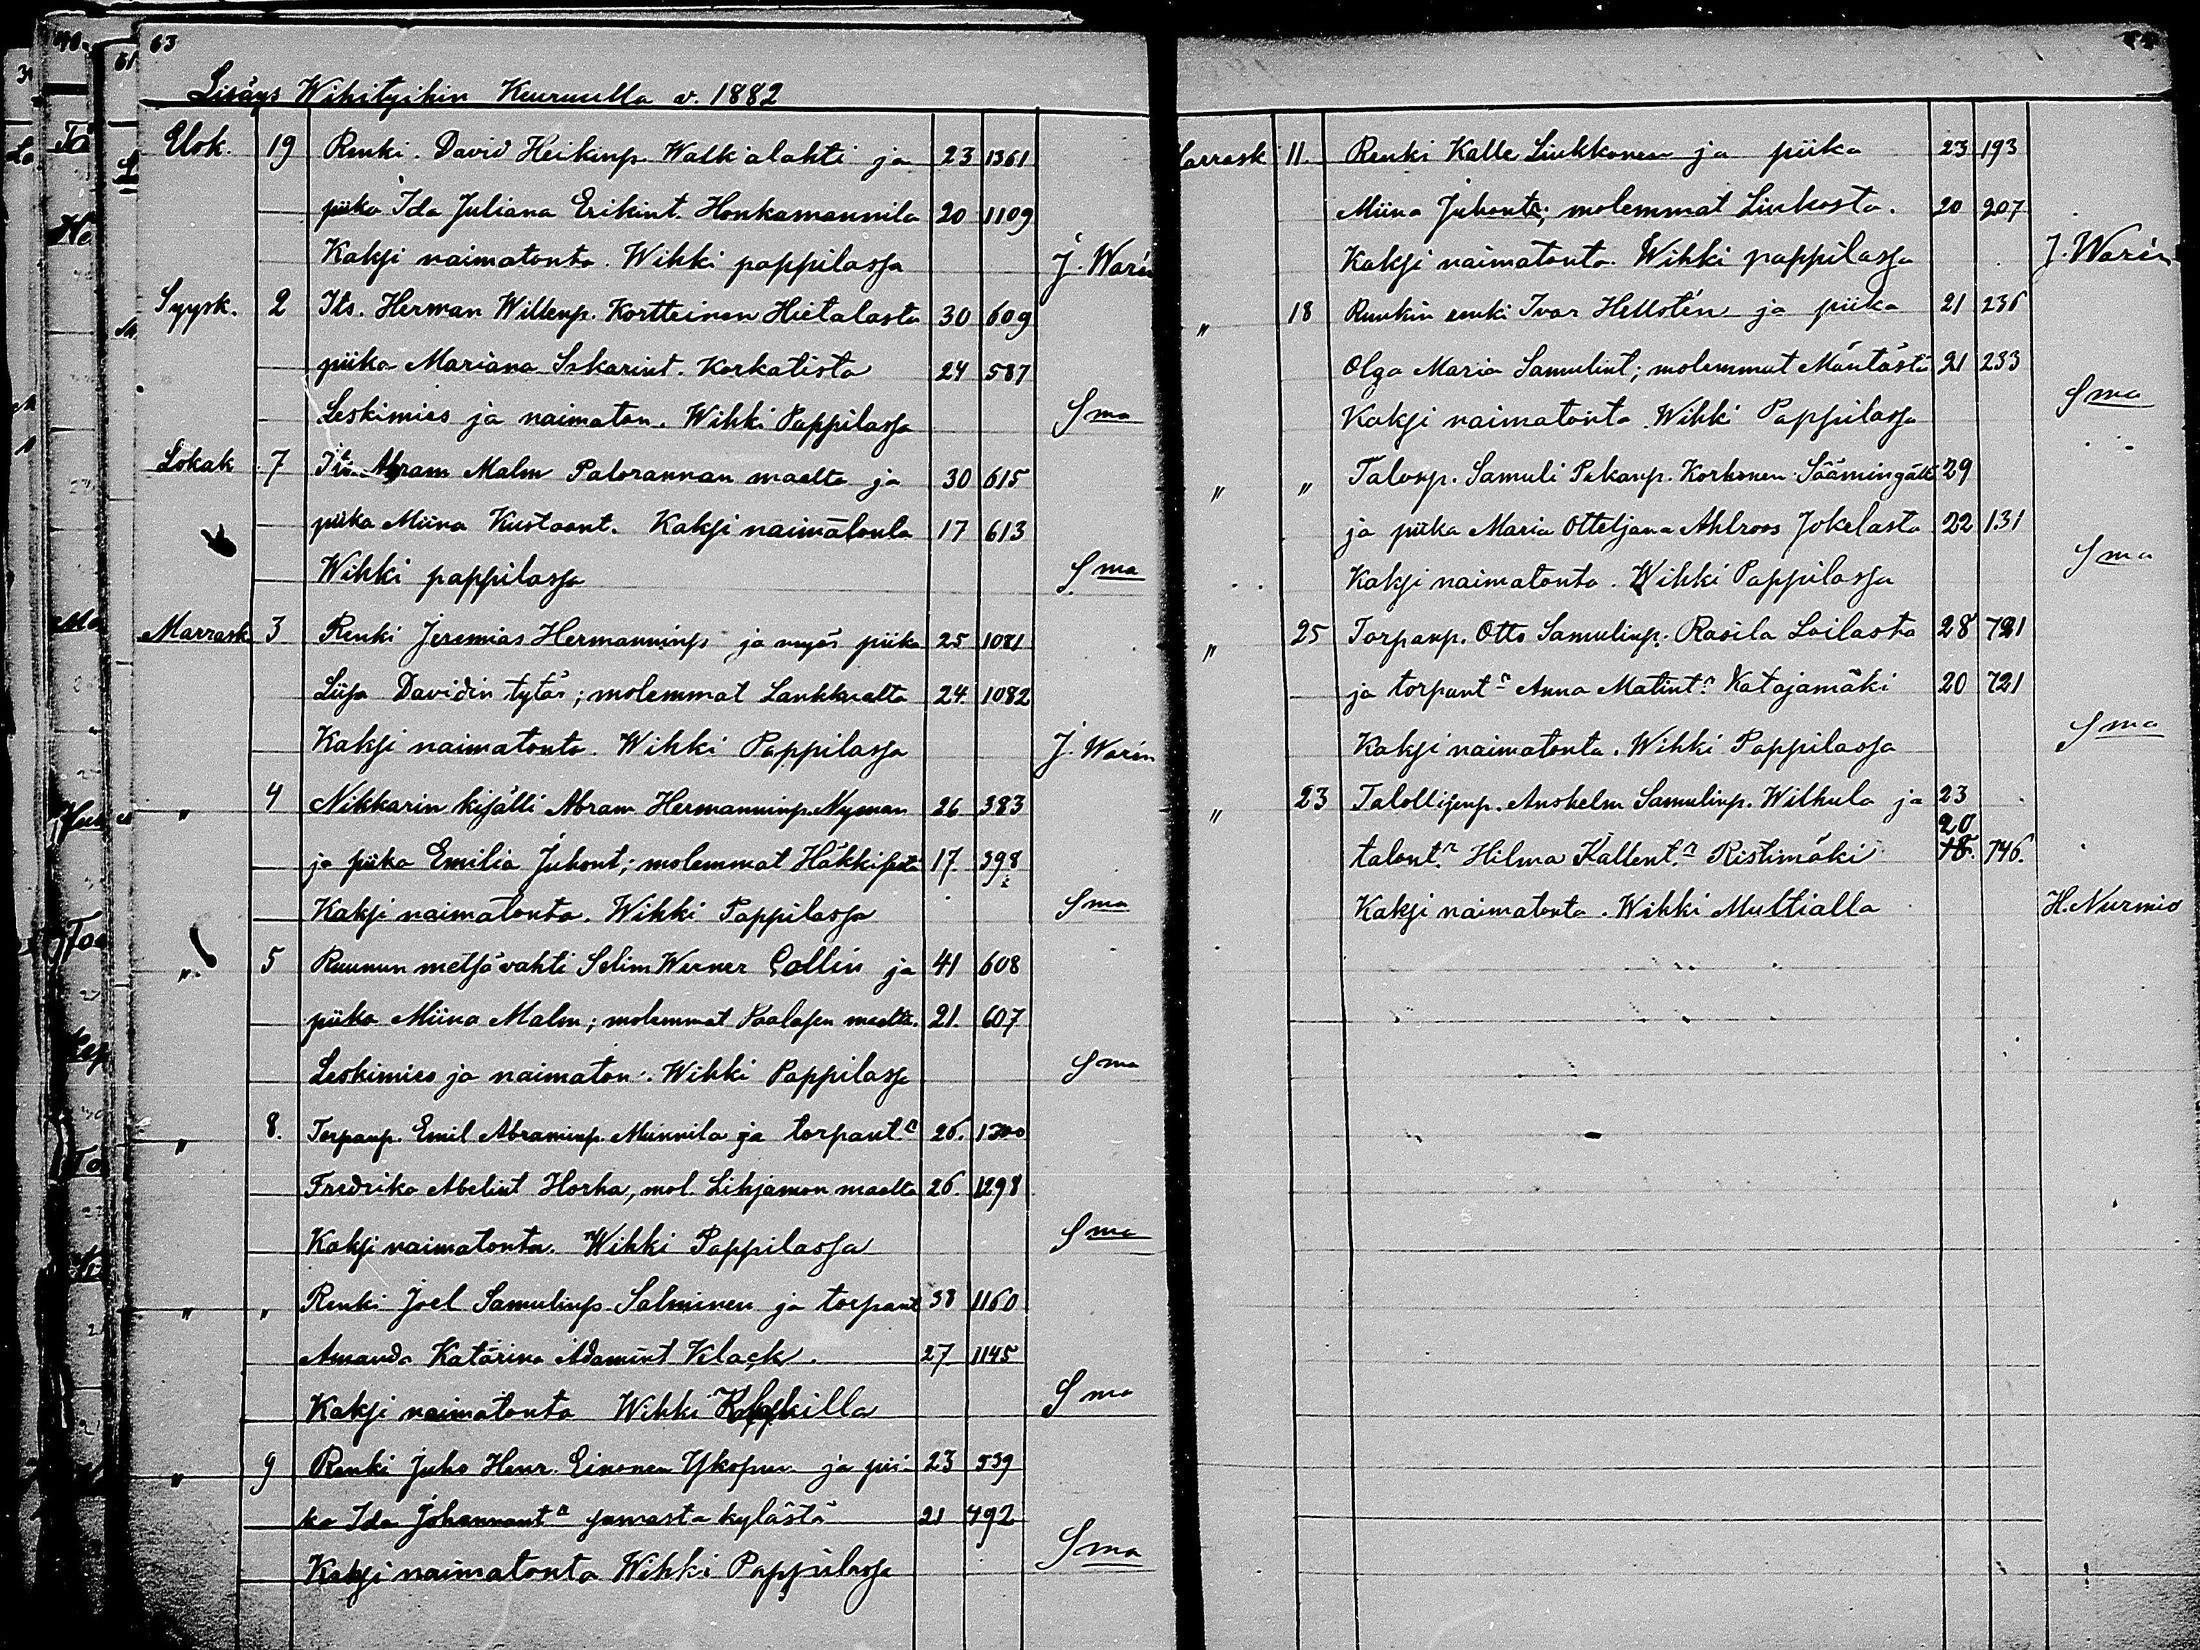 63
Lisäys Wihityihin Keuruulla v. 1882
Elok. 19 Renki David Heikinp. Walkialahti ja 23 1361
piika Ida Juliana Erikint. Honkamannila 20 1109
Kaksi naimatonta. Wihki pappilassa J. Warén
Syysk. 2 Its. Herman Willenp. Kortteinen Hietalasta 30 609
piika Mariana Iskarint. Korkatista 24 587
Leskimies ja naimaton. Wihki Pappilassa Sma
Lokak 7 Its. Abram Malm Palorannan maalta ja 30 615
piika Miina Kustaant. Kaksi naimatonta 17 613
Wihki pappilassa Sma
Marrask 3 Renki Jeremias Hermanninp ja myös piika 25 1081
Liisa Davidin tytär; molemmat Lankkualta 24. 1082
Kaksi naimatonta. Wihki Pappilassa J. Warén
" 4 Nikkarin kisälli Abram Hermanninp. Nyman 26 383
ja piika Emilia Juhont; molemmat 17. 398
Kaksi naimatonta. Wihki Pappilassa Sma
" 5 Ruunun metsävahti Selim Werner Collin ja 41 608
piika Miina Malm; molemmat maalta. 21. 607
Leskimies ja naimaton. Wihki Pappilassa Sma
" 8. Torparp. Emil Abraminp. Männila ja torpant.r 26. 1300
Fredrika Abelint Horha, mol. Lihjamon maalta 26. 1298
Kaksi naimatonta. Wihki Pappilassa Sma
" " Renki Joel Samulinp. Salminen ja torpant 38 1160
Amanda Katarina Adamint Klack. 27 1145
Kaksi naimatonta Wihki Sma
" 9 Renki Juho Henr. Einonen ja pii- 23 539
ka Ida Johannant.r samasta kylästä 21 492
Kaksi naimatonta Wihki Pappilassa Sma
Marrask 11. Renki Kalle Liukkonen ja piika 23 193
Miina Juhont; molemmat Liukosta. 20 207
Kaksi naimatonta. Wihki pappilassa J. Warén
" 18 Ruukin renki Ivar Hellstén ja piika 21 236
Olga Maria Samulint; molemmat Mäntästä 21 233
Kaksi naimatonta. Wihki Pappilassa Sma
" " Talonp. Samuli Pekanp. Korhonen Säämingältä 29
ja piika Maria Otteljana Ahlroos Jokelasta 22 131
Kaksi naimatonta. Wihki Pappilassa Sma
" 25 Torparp. Otto Samulinp. Rasila Loilasta 28 721
ja torpant.r Anna Matint.r Katajamäki 20 721
Kaksi naimatonta. Wihki Pappilassa Sma
" 23 Talollisenp. Anshelm Samulinp. Wilkula ja 23
20
talont.r Hilma Kallent.r Ristimäki 18. 746.
Kaksi naimatonta. Wihki Multialla H. Nurmio